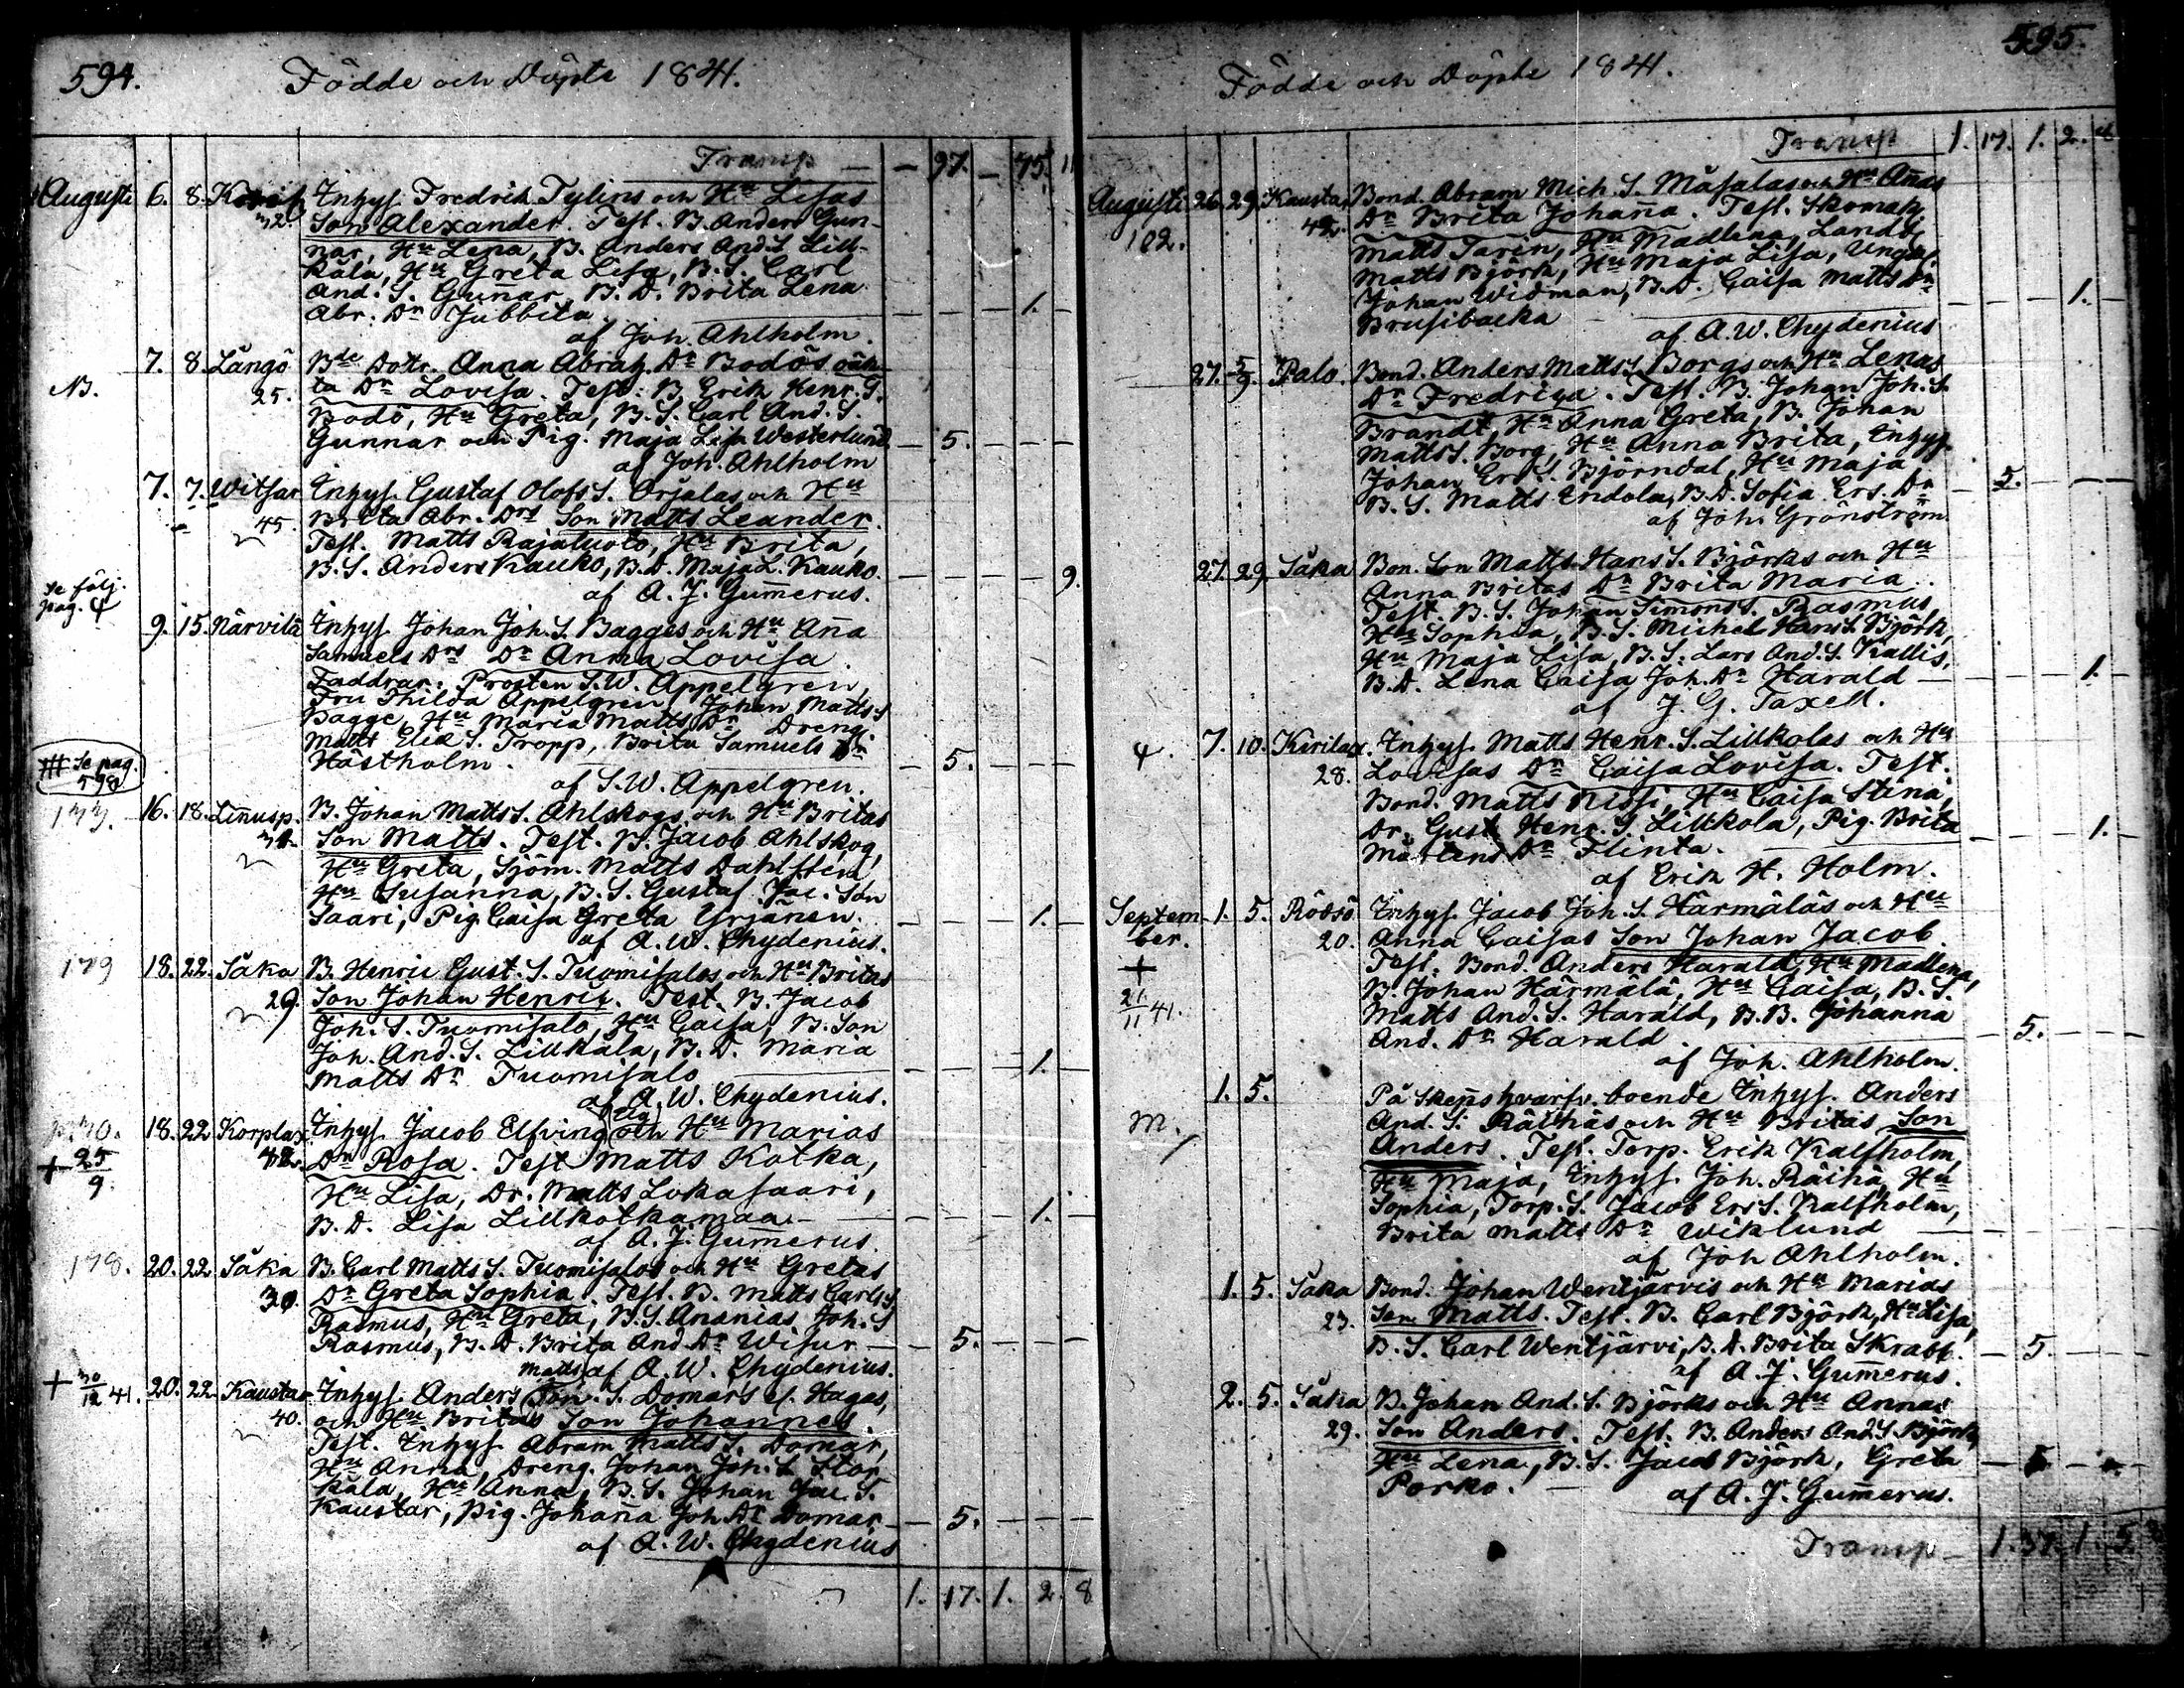 594.
Födde och Döpte 1841.
Transp — — 97. — 45. 11
Augusti 6. 8. Inhys. Fredrik Tylins och Hu Lisas
32. Son Alexander. Test. B. Anders Gun-
nar, Hu Lena, B. Anders And. S. Lill-
kåla, Hu Greta Lisa, B. S. Carl
And. S. Gunnar, B. D. Brita Lena
Abr. Dr Jubbila — — — 1. —
af Joh. Ahlholm.
7. 8. Långö Bde Dottr. Anna Abrah. Dr Bodös oäk-
N. 25. ta Dr Lovisa. Test. B. Erik Henr. S.
Bodö, Hu Greta, B. S. Carl And. S.
Gunnar och Pig. Maja Lisa Westerlund — 5. — — —
af Joh. Ahlholm
7. 7. Witsar Inhys. Gustaf Olofs S. Orjalas och Hu
45. Brita Abr. Drs Son Matts Leander.
Test. Matts Rajaluoto, Hu Brita,
B. S. Anders Kauko, B. D. Maja L. Kauko. — — — — 9.
af A. J. Gum̄erus.
Se följ.
pag. 4
9. 15. Närvilä Inhys. Johan Joh. S. Bagges och Hu An̄a
Samuels Drs Dr Anna Lovisa.
Faddrar: Prosten S. W. Appelgren,
Fru Thilda Appelgren, Johan Matts S
Bagge, Hu Maria Matts Dr Dreng.
Matts Elia S. Tropp, Brita Samuels Dr
Hästholm. — 5. — — —
af S. W. Appelgren.
Se pag.
598
16. 18. Lin̄usp. B. Johan Matts S. Ahlskogs och Hu Britas
Son Matts. Test. B. Jacob Ahlskog,
Hu Greta, Sjöm. Matts Dahlsten
Hu Susanna, B. S. Gustaf Jac. Son
Saari, Pig. Caisa Greta Yrjänen. — — — 1. —
af A. W. Chydenius.
179 18. 22. Såka B. Henric Gust. S. Tuomisalos och Hu Britas
29. Son Johan Henric. Test. B. Jacob
Joh. S. Tuomisalo, Hu Caisa, B. Son
Joh. And. S. Lillkåla, B. D. Maria
Matts Dr Tuomisalo — — — 1. —
af A. W. Chydenius.
18. 22 Korplax. Inhys. Jacob Elfving och Hu Marias
+ 25/9 Dr Rosa. Test Matts Kotka,
Hu Lisa, Dr. Matts Lokasaari,
B. D. Lisa Lillkotkamaa — — — 1. —
af A. J. Gum̄erus.
178. 20. 22 Såka B. Carl Matts S. Tuomisalos och Hu Gretas
30. Dr Greta Sophia. Test. B. Matts Carls S
Rasmus, Hu Greta, B. S. Ananias Joh. S
Rasmus, B. D. Brita And. Dr Wisur — 5. — — —
af A. W. Chydenius.
+ 30/12 41. 20. 22. Kaustar Inhys. Anders Matts S. Domars el. Hagas,
40. och Hu Britas Son Johannes
Test. Inhys. Abram Matts S. Domar,
Hu Anna, Dreng. Johan Joh. S. Stor
kåla, Hu Anna, B. S. Johan Jac. S.
Kaustar, Pig. Johan̄a Joh. Dr Domar — 5. — — —
af A. W. Chydenius
1. 17. 1. 2. 8
595.
Födde och Döpte 1841.
Transp 1. 17. 1. 2. 8
Augusti 26. 29. Kaustar Bond. Abram Mich. S. Måsalas och Hu An̄as
182. 42. Dr Brita Johan̄a. Test. Skomak.
Matts Taren, Hu Madlena, Landb.
Matts Björk, Hu Maja Lisa, Ungk.
Johan Widman, B. D. Caisa Matts Dr
Brusibacka — — — 1. —
af A. W. Chydenius
27. 5/9. Palo. Bond. Anders Matts S. Borgs och Hu Lenas
Dr Fredrica. Test. B. Johan Joh. S.
Brandt, Hu Anna Greta, B. Johan
Matts S. Borg, Hu Anna Brita, Inhys.
Johan Ers. S. Björndal, Hu Maja,
B. S. Matts Indola, B. D. Sofia Ers. Dr — 5. — — —
af Joh. Grönström
27. 29. Såka Bon. Son Matts Hans S. Björks och Hu
Anna Britas Dr Brita Maria.
Test. B. S. Johan Simons S. Rasmus,
Hu Sophia, B. S. Michel Hans S. Björk,
Hu Maja Lisa, B. S. Lars And. S. Kallis,
B. D. Lena Caisa Joh. Dr Harald — — — 1. —
af J. G. Taxell.
4. 7. 10. Kirilax. Inhys. Matts Henr. S. Lillkolas och Hu
28. Lovisas Dr Caisa Lovisa. Test.
Bond. Matts Nissi, Hu Caisa Stina,
Dr. Gust. Henr. S. Lillkola, Pig. Brita
Mårtens Dr Flinta. — — — 1. —
af Erik H. Holm.
Septem- 1. 5. Rödsö Inhys. Jacob Joh. S. Härmäläs och Hu
ber. 20. Anna Caisas Son Johan Jacob.
+ Test. Bond. Anders Harald, Hu Madlena,
21/11 41. B. Johan Härmälä, Hu Caisa, B. S.
Matts And. S. Harald, B. D. Johanna
And. Dr Harald — 5. — —
af Joh. Ahlholm.
1. 5. På Sken̄shvarfv. boende Inhys. Anders
M. And. S. Räihäs och Hu Britas Son
Anders. Test. Torp. Erik Kalfholm,
Hu Maja, Inhys. Joh. Räihä, Hu
Sophia, Torp. S. Jacob Ers S. Kalfholm,
Brita Matts Dr Wiklund — — — —
af Joh Ahlholm.
1. 5. Såka Bond. Johan Wentjärvis och Hu Marias
23. Son Matts. Test. B. Carl Björk, Hu Lisa,
B. S. Carl Wentjärvi, B. D. Brita Skrabb. — 5 — — —
af A. J. Gum̄erus.
2. 5. Såka B. Johan And. S. Björks och Hu Annas
29. Son Anders. Test. B. Anders And. S. Björk,
Hu Lena, B. S. Jacob Björk, Greta
Porko. — 5 — —
af A. J. Gum̄erus.
Transp — 1. 37. 1. 5